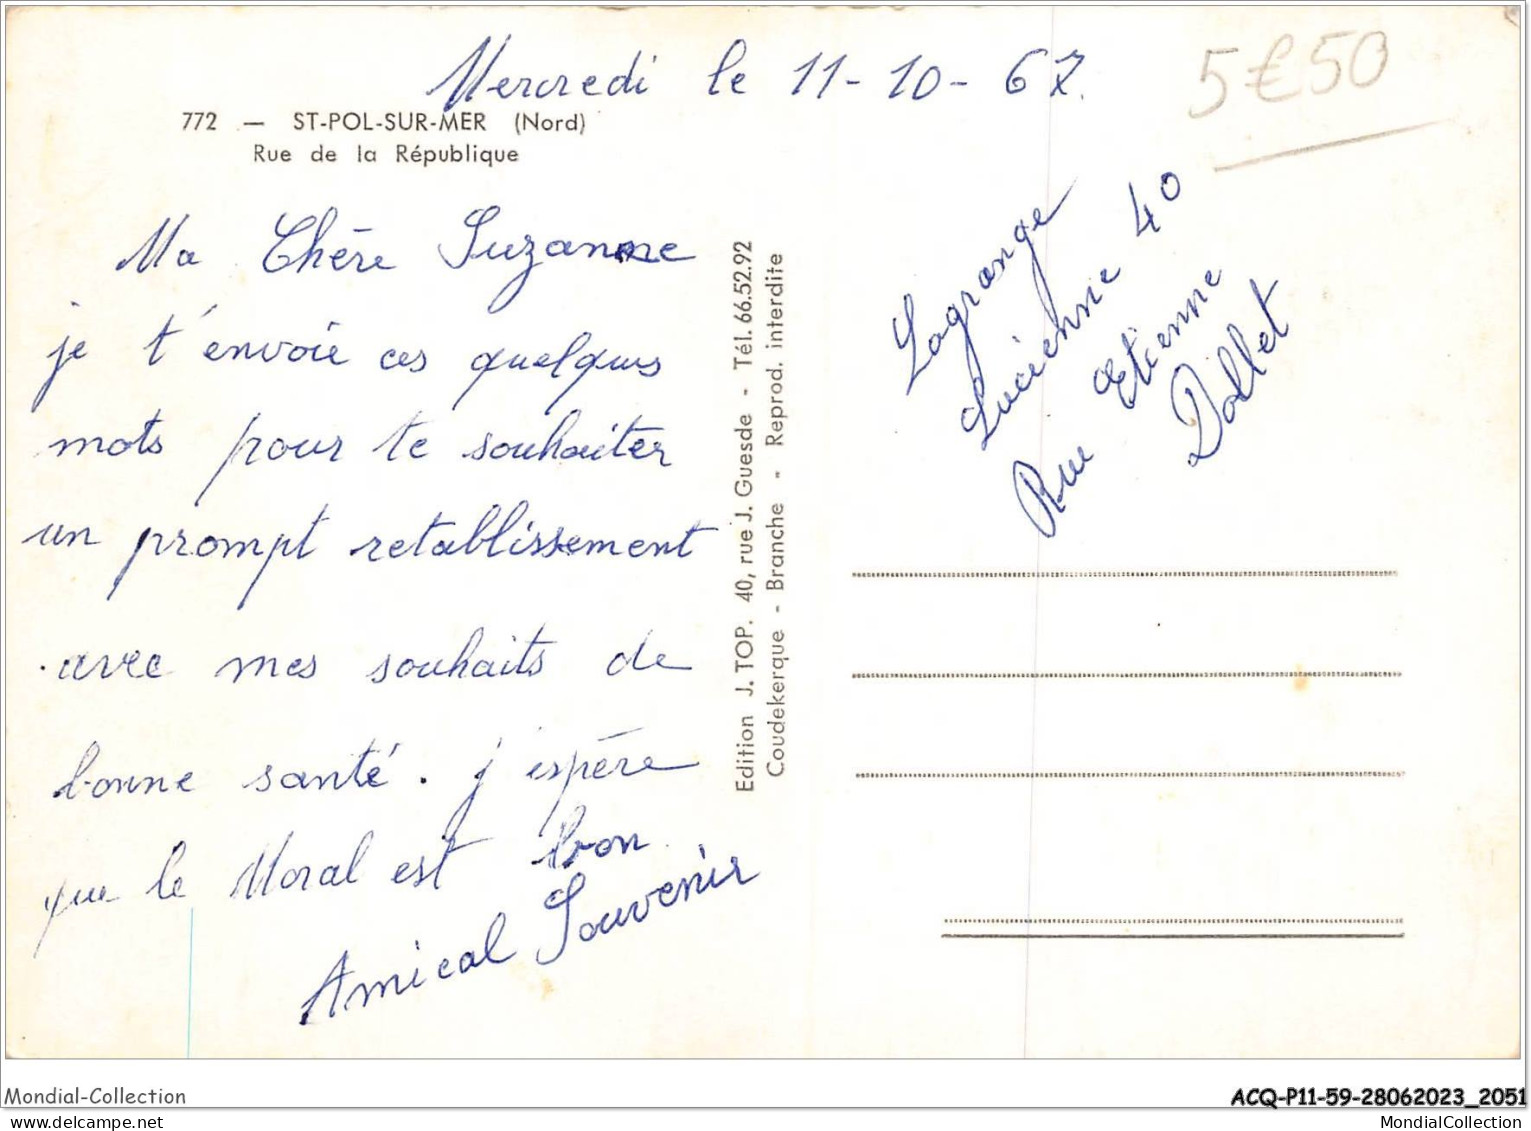 Mercredi le 11-10-67.
5€50
772 — ST-POL-SUR-MER (Nord)
Rue de la République
Ma Chère Suzanne
je t'envoie ces quelques
mots pour te souhaiter
un prompt retablissement
avec mes souhaits de
bonne santé. j'espère
que le Moral est bon
Amical Souvenir
Edition J. TOP. 40, rue J. Guesde - Tél. 66.52.92
Coudekerque - Branche - Reprod. interdite
Lagrange
Lucienne 40
Rue Etienne
Dollet
Mondial-Collection
ACQ-P11-59-28062023_2051
mondial-collection.com
MondialCollection